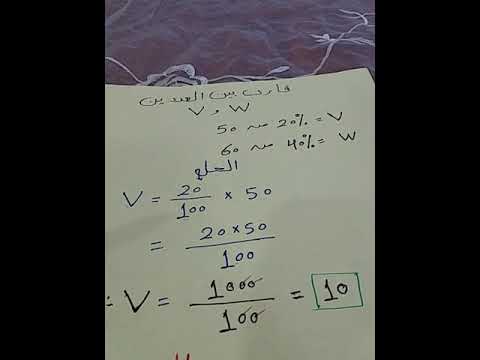 قارن بين العددين
V و W
V = 20% من 50
W = 40% من 60
الحل
V = 20/100 × 50
= 20×50/100
= V = 1000/100 = 10